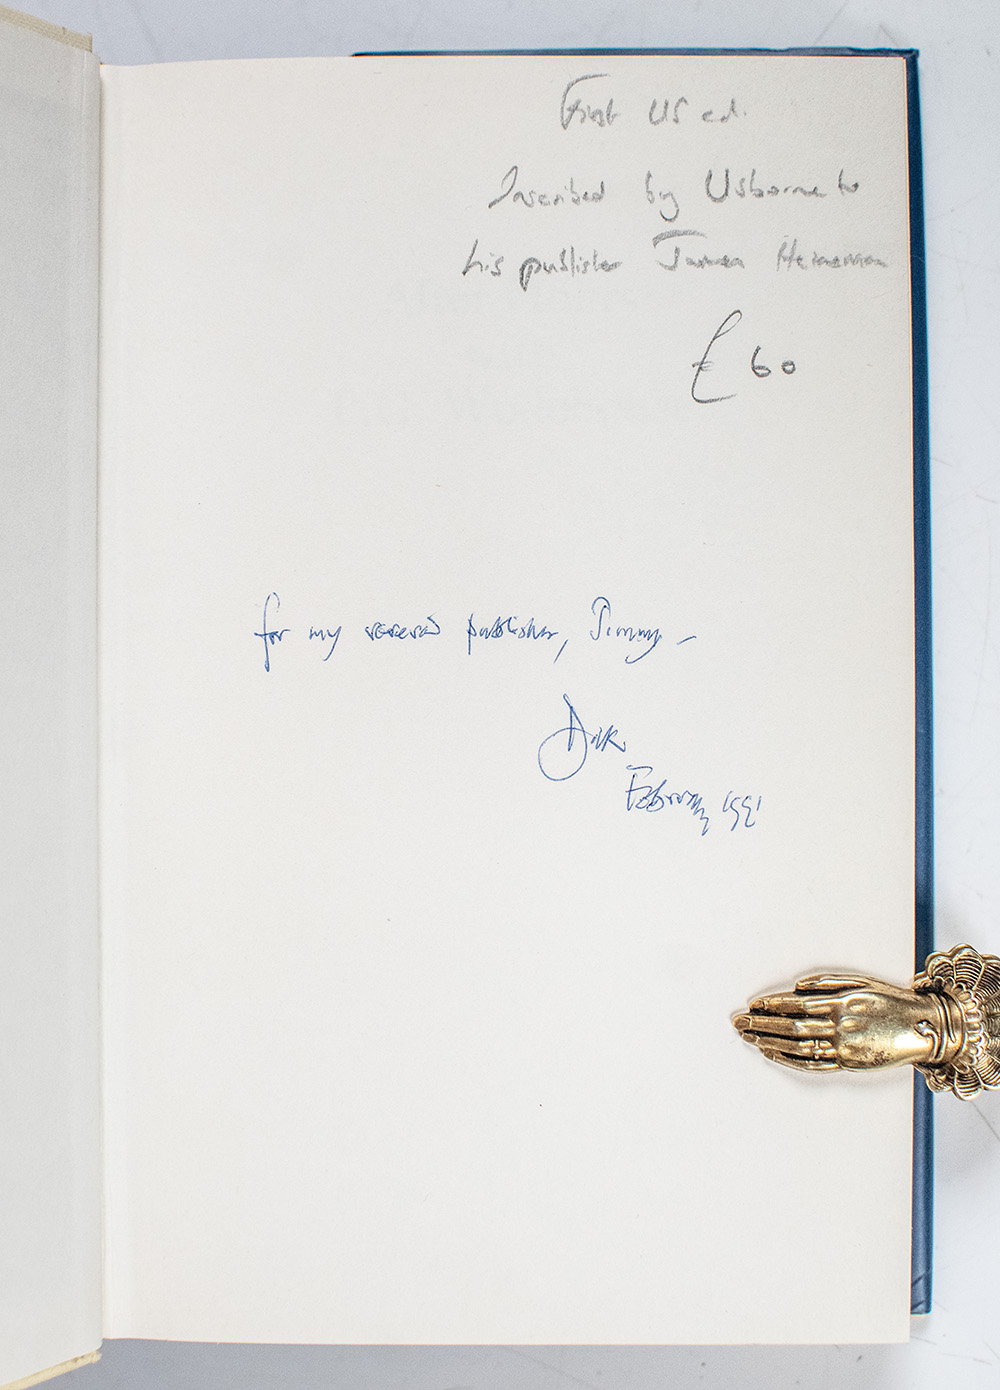 First US ed.
Inscribed by Usborne to
his publisher James Heineman
£60
for my revered publisher, Jimmy –
Dick
February 1991